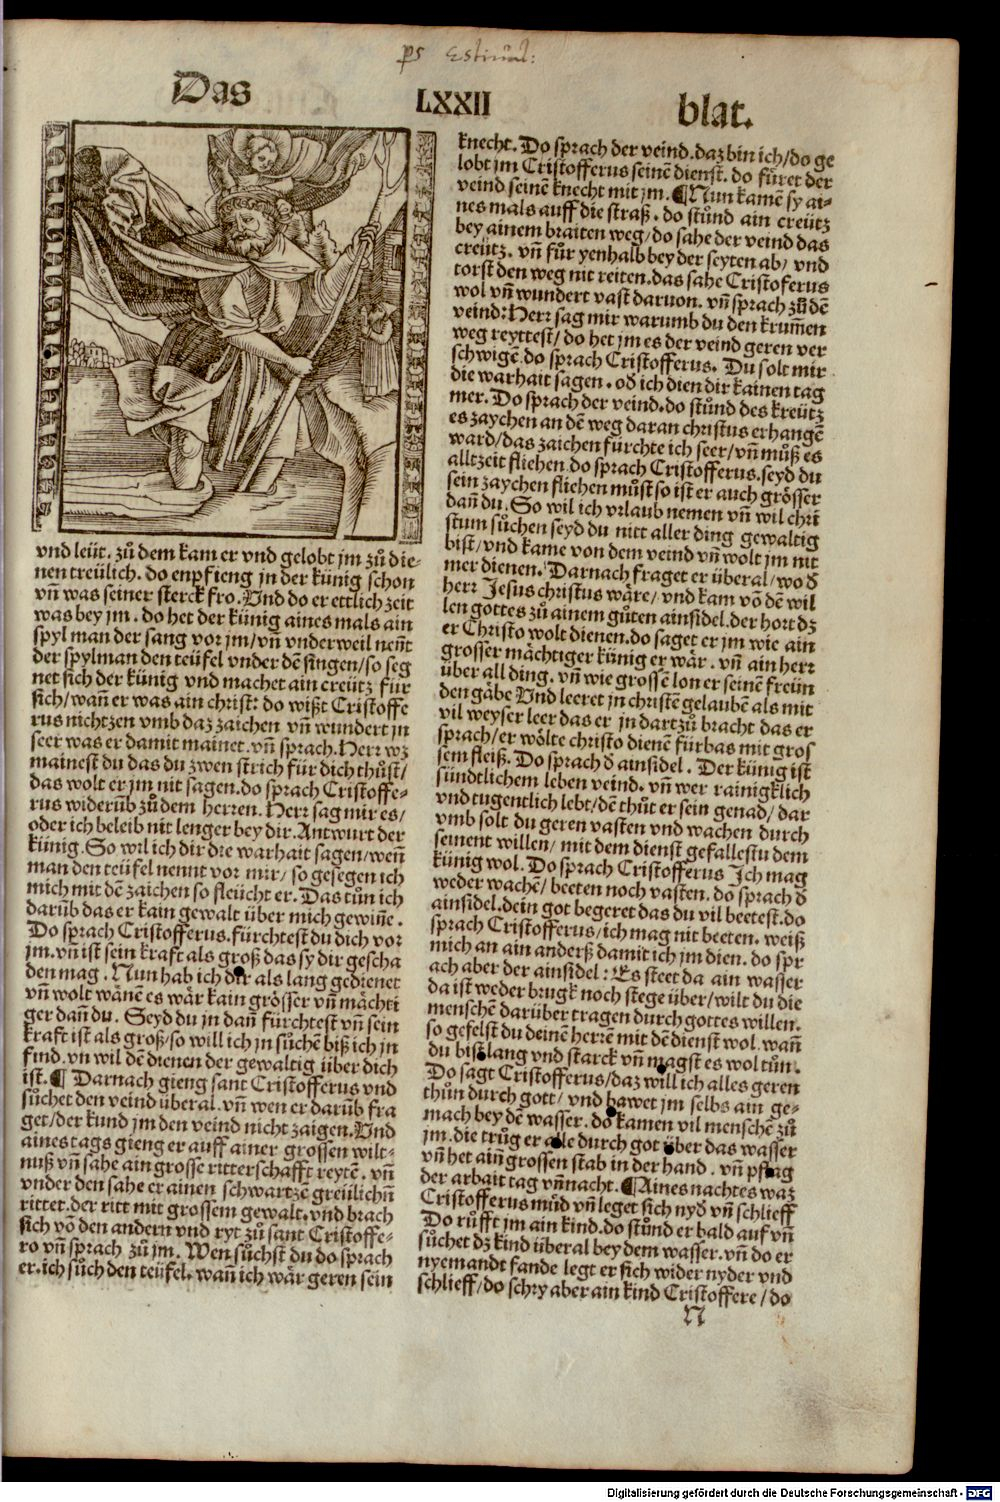 ps Estiual:
Das LXXII blat.
vnd leüt. zuͦ dem kam er vnd gelobt jm zuͦ die⸗
nen treülich. do enpfieng jn der künig schon
vn̄ was seiner sterck fro. Vnd do er ettlich zeit
was bey jm. do het der künig aines mals ain
spyl man der sang vor jm/ vn̄ vnderweil nen̄t
der spylman den teüfel vnder dē singen/ so seg
net sich der künig vnd machet ain creütz für
sich/ wan̄ er was ain christ: do wißt Cristoffe
rus nichtzen vmb daz zaichen vn̄ wundert jn
seer was er damit mainet. vn̄ sprach. Herr wz
mainest du das du zwen strich für dich thuͦst/
das wolt er jm nit sagen. do sprach Cristoffe⸗
rus widerūb zuͦ dem herren. Herr sag mir es/
oder ich beleib nit lenger bey dir. Antwurt der
künig. So wil ich dir die warhait sagen/ wen̄
man den teüfel nennt vor mir/ so gesegen ich
mich mit dē zaichen so fleücht er. Das tuͦn ich
darūb das er kain gewalt über mich gewiñe.
Do sprach Cristofferus. fürchtest du dich vor
jm. vn̄ ist sein kraft als groß das sy dir gescha
den mag. Nun hab ich dir als lang gedienet
vn̄ wolt wänē es wär kain grösser vn̄ mächti
ger dan̄ du. Seyd du jn dan̄ fürchtest vn̄ sein
kraft ist als groß/ so will ich jn suͦchē biß ich jn
find. vn̄ wil dē dienen der gewaltig über dich
ist. ¶ Darnach gieng sant Cristofferus vnd
suͦchet den veind überal. vn̄ wen er darūb fra
get/ der kund jm den veind nicht zaigen. Vnd
aines tags gieng er auff ainer grossen wilt⸗
nuß vn̄ sahe ain grosse ritterschafft reytē. vn̄
vnder den sahe er ainen schwartzē greülichn̄
ritter. der ritt mit grossem gewalt. vnd brach
sich vō den andern vnd ryt zuͦ sant Cristoffe⸗
ro vn̄ sprach zuͦ jm. Wen suͦchst du do sprach
er. ich suͦch den teüfel. wan̄ ich wär geren sein
knecht. Do sprach der veind. daz bin ich/ do ge
lobt jm Cristofferus seinē dienst. do füret der
veind seinē knecht mit jm. ¶ Nun kamē sy ai⸗
nes mals auff die straß. do stuͦnd ain creütz
bey ainem braiten weg/ do sahe der veind das
creütz. vn̄ fuͦr yenhalb bey der seyten ab/ vnd
torst den weg nit reiten. das sahe Cristoferus
wol vn̄ wundert vast daruon. vn̄ sprach zuͦ dē
veind: Herr sag mir warumb du den krum̄en
weg reyttest/ do het jm es der veind geren ver
schwigē. do sprach Cristofferus. Du solt mir
die warhait sagen. od̄ ich dien dir kainen tag
mer. Do sprach der veind. do stuͦnd des kreütz
es zaychen an dē weg daran christus erhangē
ward/ das zaichen fürchte ich seer/ vn̄ muͦß es
alltzeit fliehen. do sprach Cristofferus. seyd du
sein zaychen fliehen muͦst so ist er auch grösser
dan̄ du. So wil ich vrlaub nemen vn̄ wil chri
stum suͦchen seyd du nitt aller ding gewaltig
bist/ vnd kame von dem veind vn̄ wolt jm nit
mer dienen. Darnach fraget er überal/ wo d̄
herr Jesus christus wäre/ vnd kam vō dē wil
len gottes zuͦ ainem guͦten ainsidel. der hort dz
er Christo wolt dienen. do saget er jm wie ain
grosser mächtiger künig er wär. vn̄ ain herr
über all ding. vn̄ wie grossē lon er seinē freün
den gäbe Vnd leeret jn christē gelaubē als mit
vil weyser leer das er jn dartzuͦ bracht das er
sprach/ er wölte christo dienē fürbas mit gros
sem fleiß. Do sprach d̄ ainsidel. Der künig ist
sündtlichem leben veind. vn̄ wer rainigklich
vnd tugentlich lebt/ dē thuͦt er sein genad/ dar
vmb solt du geren vasten vnd wachen durch
seinent willen/ mit dem dienst gefallestu dem
künig wol. Do sprach Cristofferus Ich mag
weder wachē/ beeten noch vasten. do sprach d̄
ainsidel. dein got begeret das du vil beetest. do
sprach Cristofferus/ ich mag nit beeten. weiß
mich an ain anderß damit ich jm dien. do spr
ach aber der ainsidel: Es steet da ain wasser
da ist weder brugk noch stege über/ wilt du die
menschē darüber tragen durch gottes willen.
so gefelst du deinē herrē mit dē dienst wol. wan̄
du bist lang vnd starck vn̄ magst es wol tuͦn.
Do sagt Cristofferus/ daz will ich alles geren
thuͦn durch gott/ vnd bawet jm selbs ain ge⸗
mach bey dē wasser. do kamen vil menschē zuͦ
jm. die truͦg er alle durch got über das wasser
vn̄ het ain̄ grossen stab in der hand. vn̄ pflag
der arbait tag vn̄ nacht. ¶ Aines nachtes waz
Cristofferus muͤd vn̄ leget sich nyd vn̄ schlieff
Do ruͦfft jm ain kind. do stuͦnd er bald auf vn̄
suͦchet dz kind überal bey dem wasser. vn̄ do er
nyemandt fande legt er sich wider nyder vnd
schlieff/ do schry aber ain kind Cristoffere/ do
N
Digitalisierung gefördert durch die Deutsche Forschungsgemeinschaft - DFG